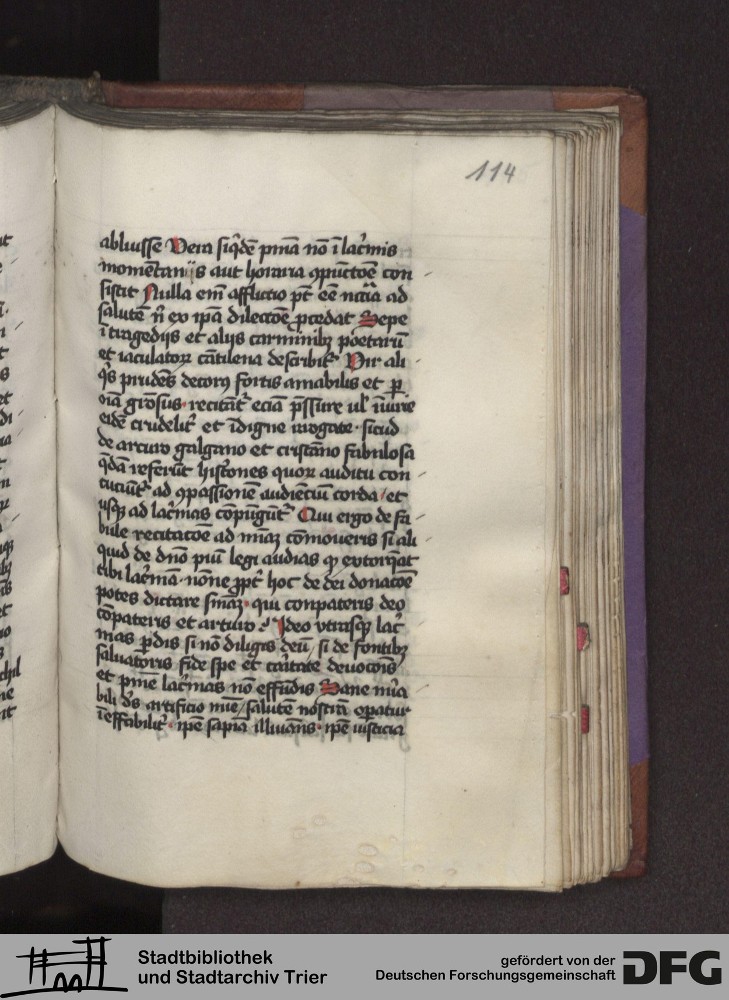 114
abluisse Vera siq̄dē pn̄ia nō ī lac̄mis
momētaniis aut horaria ꝯpūctōe con
sistit Nulla em̄ afflictio pt̄ eē nc̄cia ad
salutē n̄ ex ipa dilectōe ꝓcedat Sepe
ī tragedijs et alijs carminibꝫ poetarū
et iaculatoꝝ cātilena describit᷑ Vir ali
q̄s prudēs decorꝰ fortis amabilis et ꝑ
oīa gr̄osus recitāt᷑ eciā p̄ssure ul̓ iiurie
eidē crudelit᷑ et īdigne irrogate sicud
de arturo galgano et tristāno fabulosa
q̄dā referūt histriones quoꝝ auditu con
cuciūt᷑ ad ꝯpassionē audiēciū corda et
usqꝫ ad lac̄mas cōpūgūt᷑ Qui ergo de fa
bule recitacōe ad mīaꝫ cōmoueris si ali
quid de dn̄o piū legi audias qꝫ extorq̄at
tibi lac̄mā nōne ꝓpt̄ hoc de dei donacōe
potes dictare sn̄iaꝫ qui conpateris deo
cōpateris et arturo Ideo vtrasqꝫ lac̄
mas ꝑdis si nō diligis deū si de fontibꝫ
saluatoris fide spe et caritate deuocōis
et pn̄ie lac̄mas nō effūdis Sane mira
bili ds̄ artificio mīe salutē nostrā oꝑatur
īeffabilit᷑ ipē sapīa illuīans ipē iusticia
Stadtbibliothek
und Stadtarchiv Trier
gefördert von der
Deutschen Forschungsgemeinschaft
DFG